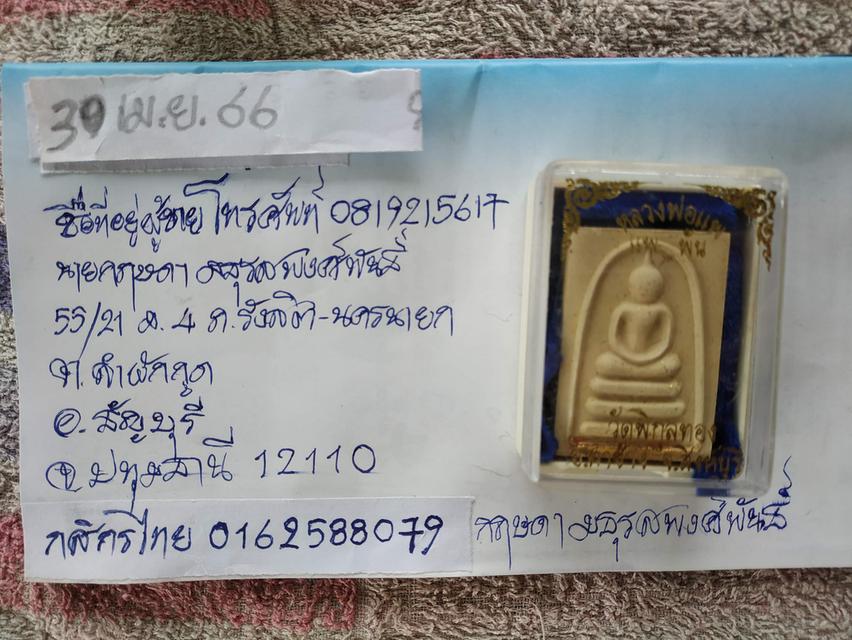 39 เม.ย. 66
ชื่อที่อยู่ผู้ขาย โทรศัพท์ 0819215617
นายกฤษดา มธุรสพงศ์พันธุ์
55/21 ม.4 ถ.รังสิต-นครนายก
ต.ลำผักกูด
อ.ธัญบุรี
จ.ปทุมธานี 12110
กสิกรไทย 0162588079 กฤษดา มธุรสพงศ์พันธุ์
หลวงพ่อแพ
แพ พัน
วัดพิกุลทอง